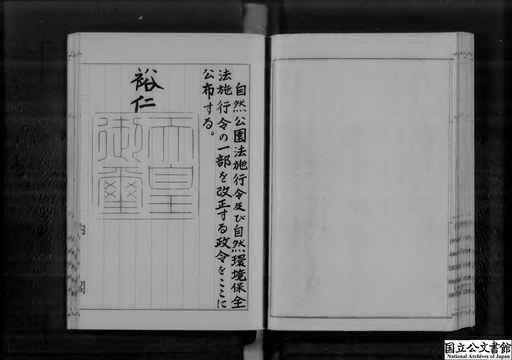 自然公園法施行令及び自然環境保全
法施行令の一部を改正する政令をここに
公布する。
裕仁
天皇
御璽
内閣
国立公文書館
National Archives of Japan